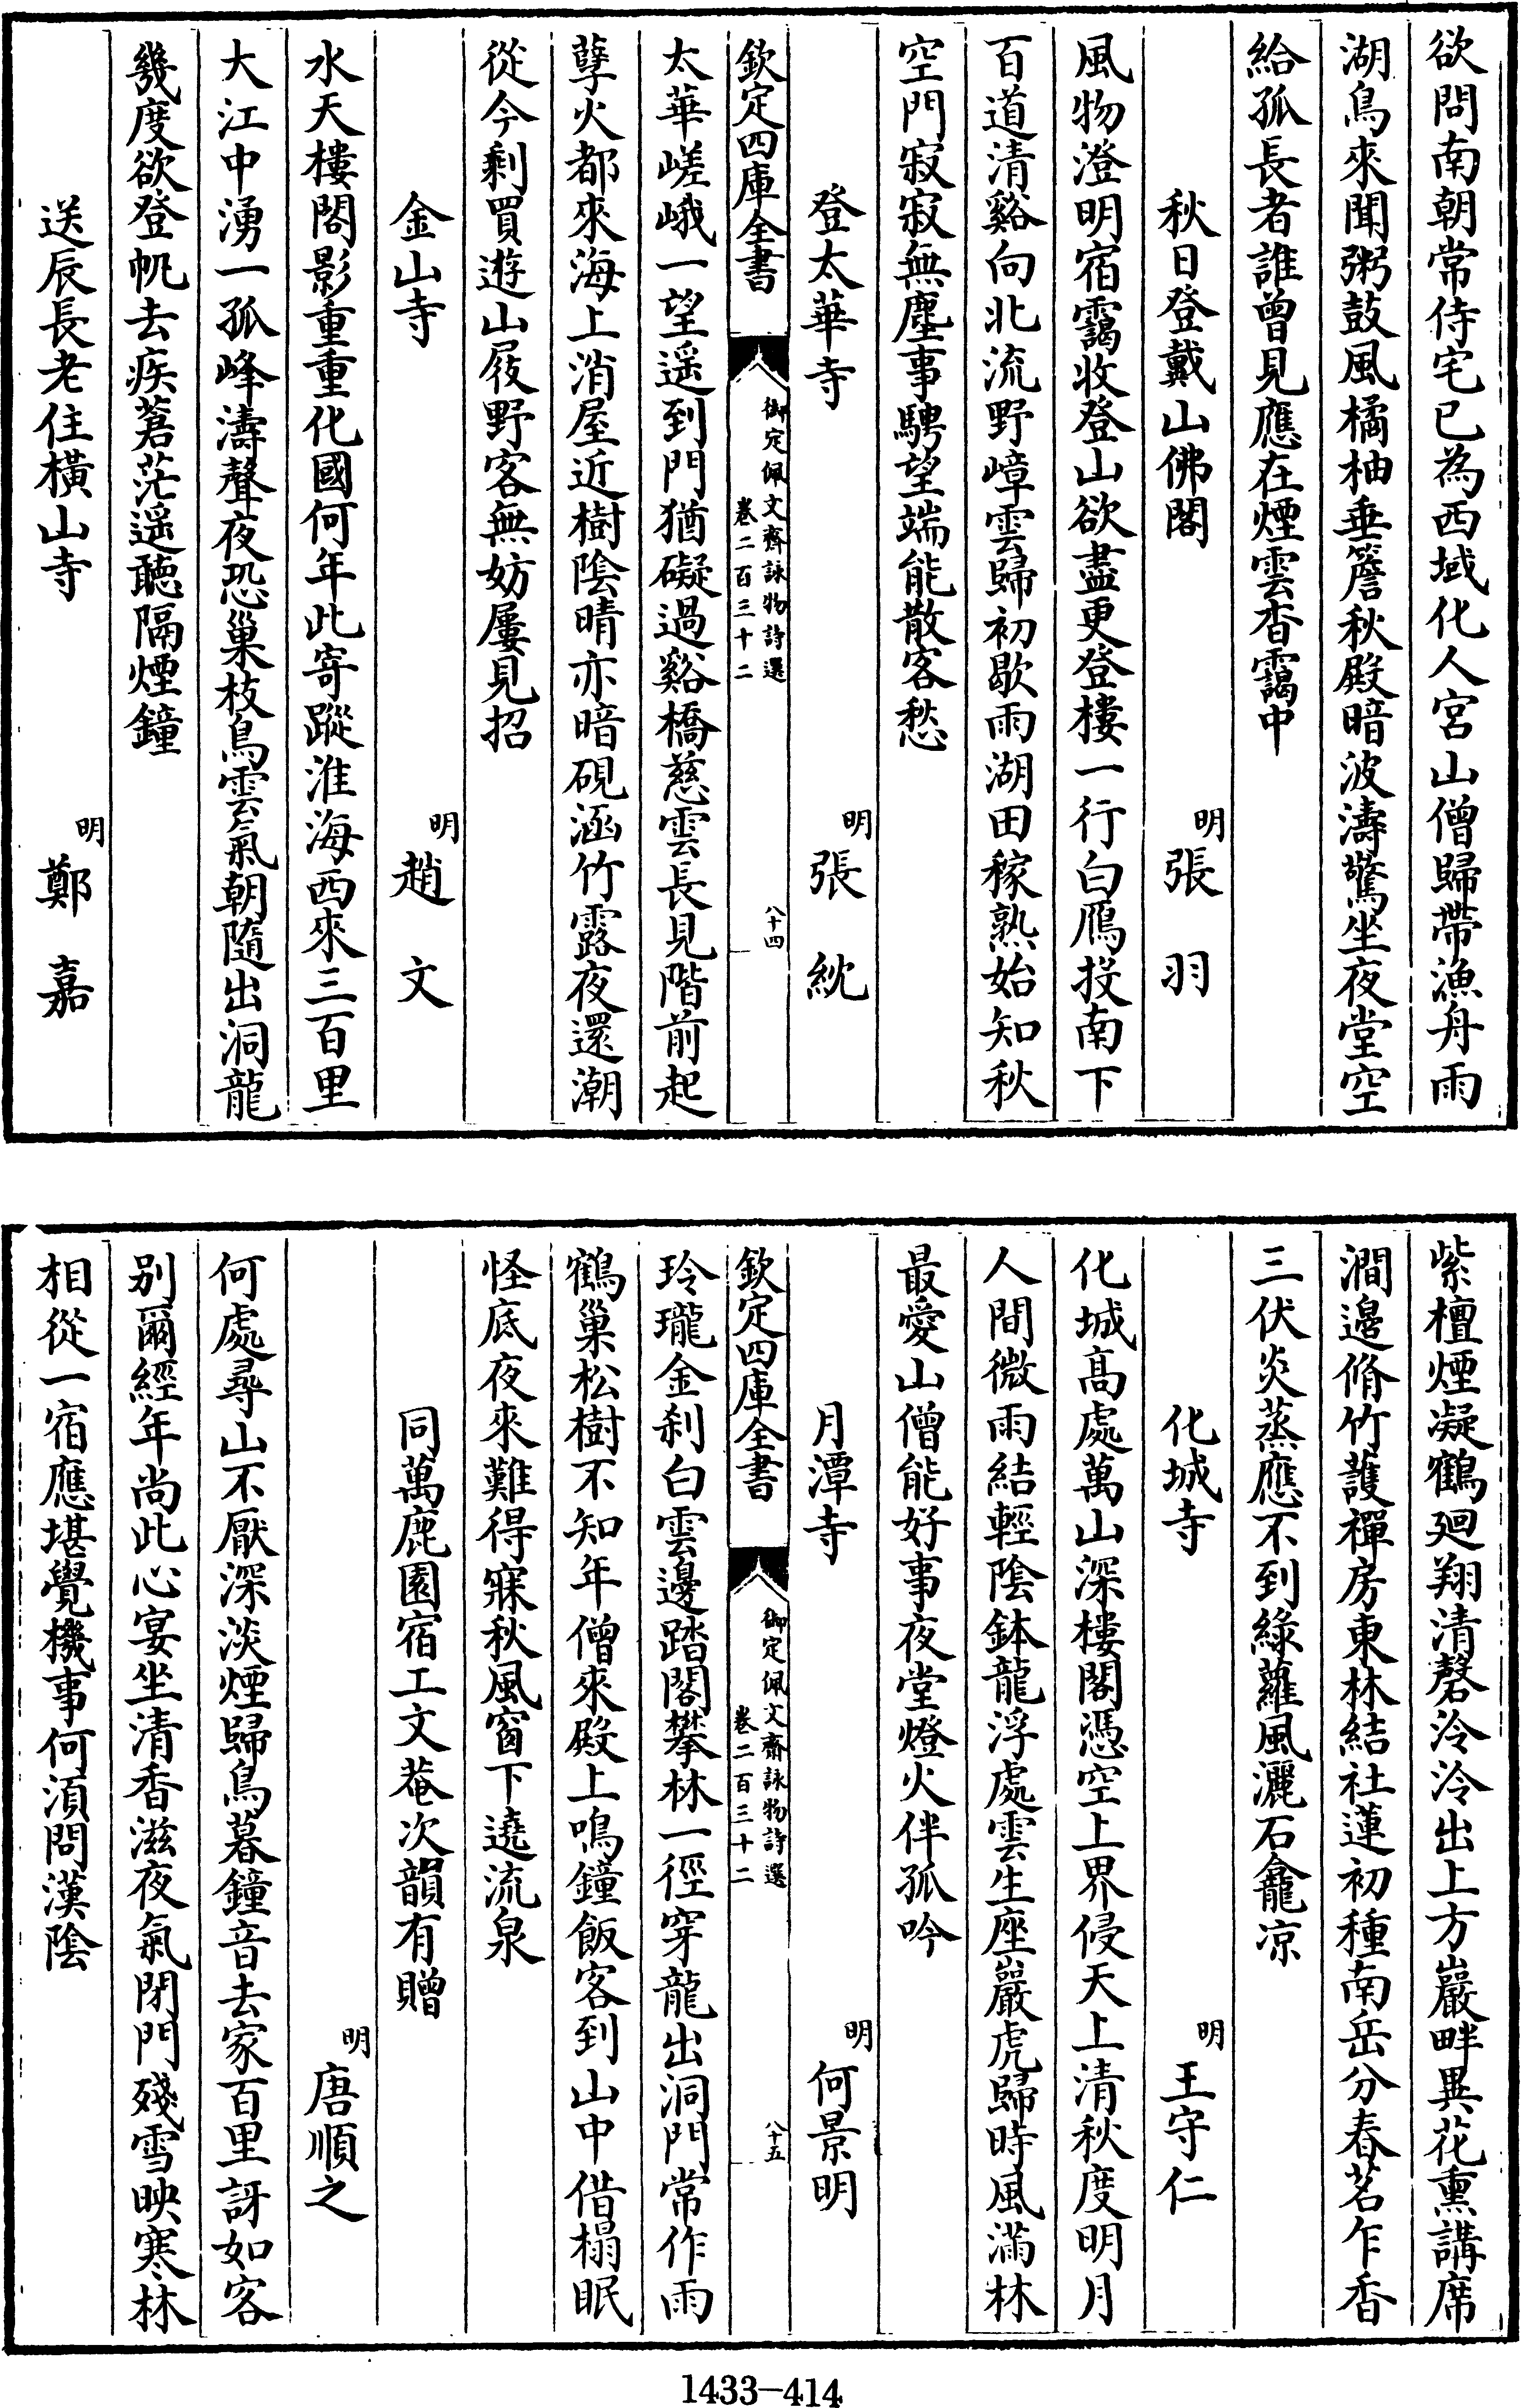 欲問南朝常侍宅已為西域化人宮山僧歸帶漁舟雨
湖鳥來聞粥鼓風橘柚垂簷秋殿暗波濤驚坐夜堂空
給孤長者誰曾見應在煙雲杳靄中
秋日登戴山佛閣 明 張羽
風物澄明宿靄收登山欲盡更登樓一行白鴈投南下
百道清谿向北流野嶂雲歸初歇雨湖田稼熟始知秋
空門寂寂無塵事騁望端能散客愁
登太華寺 明 張紞
欽定四庫全書 御定佩文齋詠物詩選 卷二百三十二 八十四
太華嵯峨一望遥到門猶礙過谿橋慈雲長見階前起
孽火都來海上消屋近樹陰晴亦暗硯涵竹露夜還潮
從今剩買遊山屐野客無妨屢見招
金山寺 明 趙文
水天樓閣影重重化國何年此寄蹤淮海西來三百里
大江中湧一孤峰濤聲夜恐巢枝鳥雲氣朝隨出洞龍
幾度欲登帆去疾蒼茫遥聽隔煙鐘
送辰長老住橫山寺 明 鄭嘉
紫檀煙凝鶴廻翔清磬泠泠出上方巖畔異花熏講席
澗邊脩竹護禪房東林結社蓮初種南岳分春茗乍香
三伏炎蒸應不到綠蘿風灑石龕凉
化城寺 明 王守仁
化城高處萬山深樓閣憑空上界侵天上清秋度明月
人間微雨結輕陰鉢龍浮處雲生座巖虎歸時風滿林
最愛山僧能好事夜堂燈火伴孤吟
月潭寺 明 何景明
欽定四庫全書 御定佩文齋詠物詩選 卷二百三十二 八十五
玲瓏金刹白雲邊踏閣攀林一徑穿龍出洞門常作雨
鶴巢松樹不知年僧來殿上鳴鐘飯客到山中借榻眠
怪底夜來難得寐秋風窗下遶流泉
同萬鹿園宿工文菴次韻有贈
明 唐順之
何處尋山不厭深淡煙歸鳥暮鐘音去家百里訝如客
别爾經年尚此心宴坐清香滋夜氣閉門殘雪映寒林
相從一宿應堪覺機事何須問漢陰
1433-414